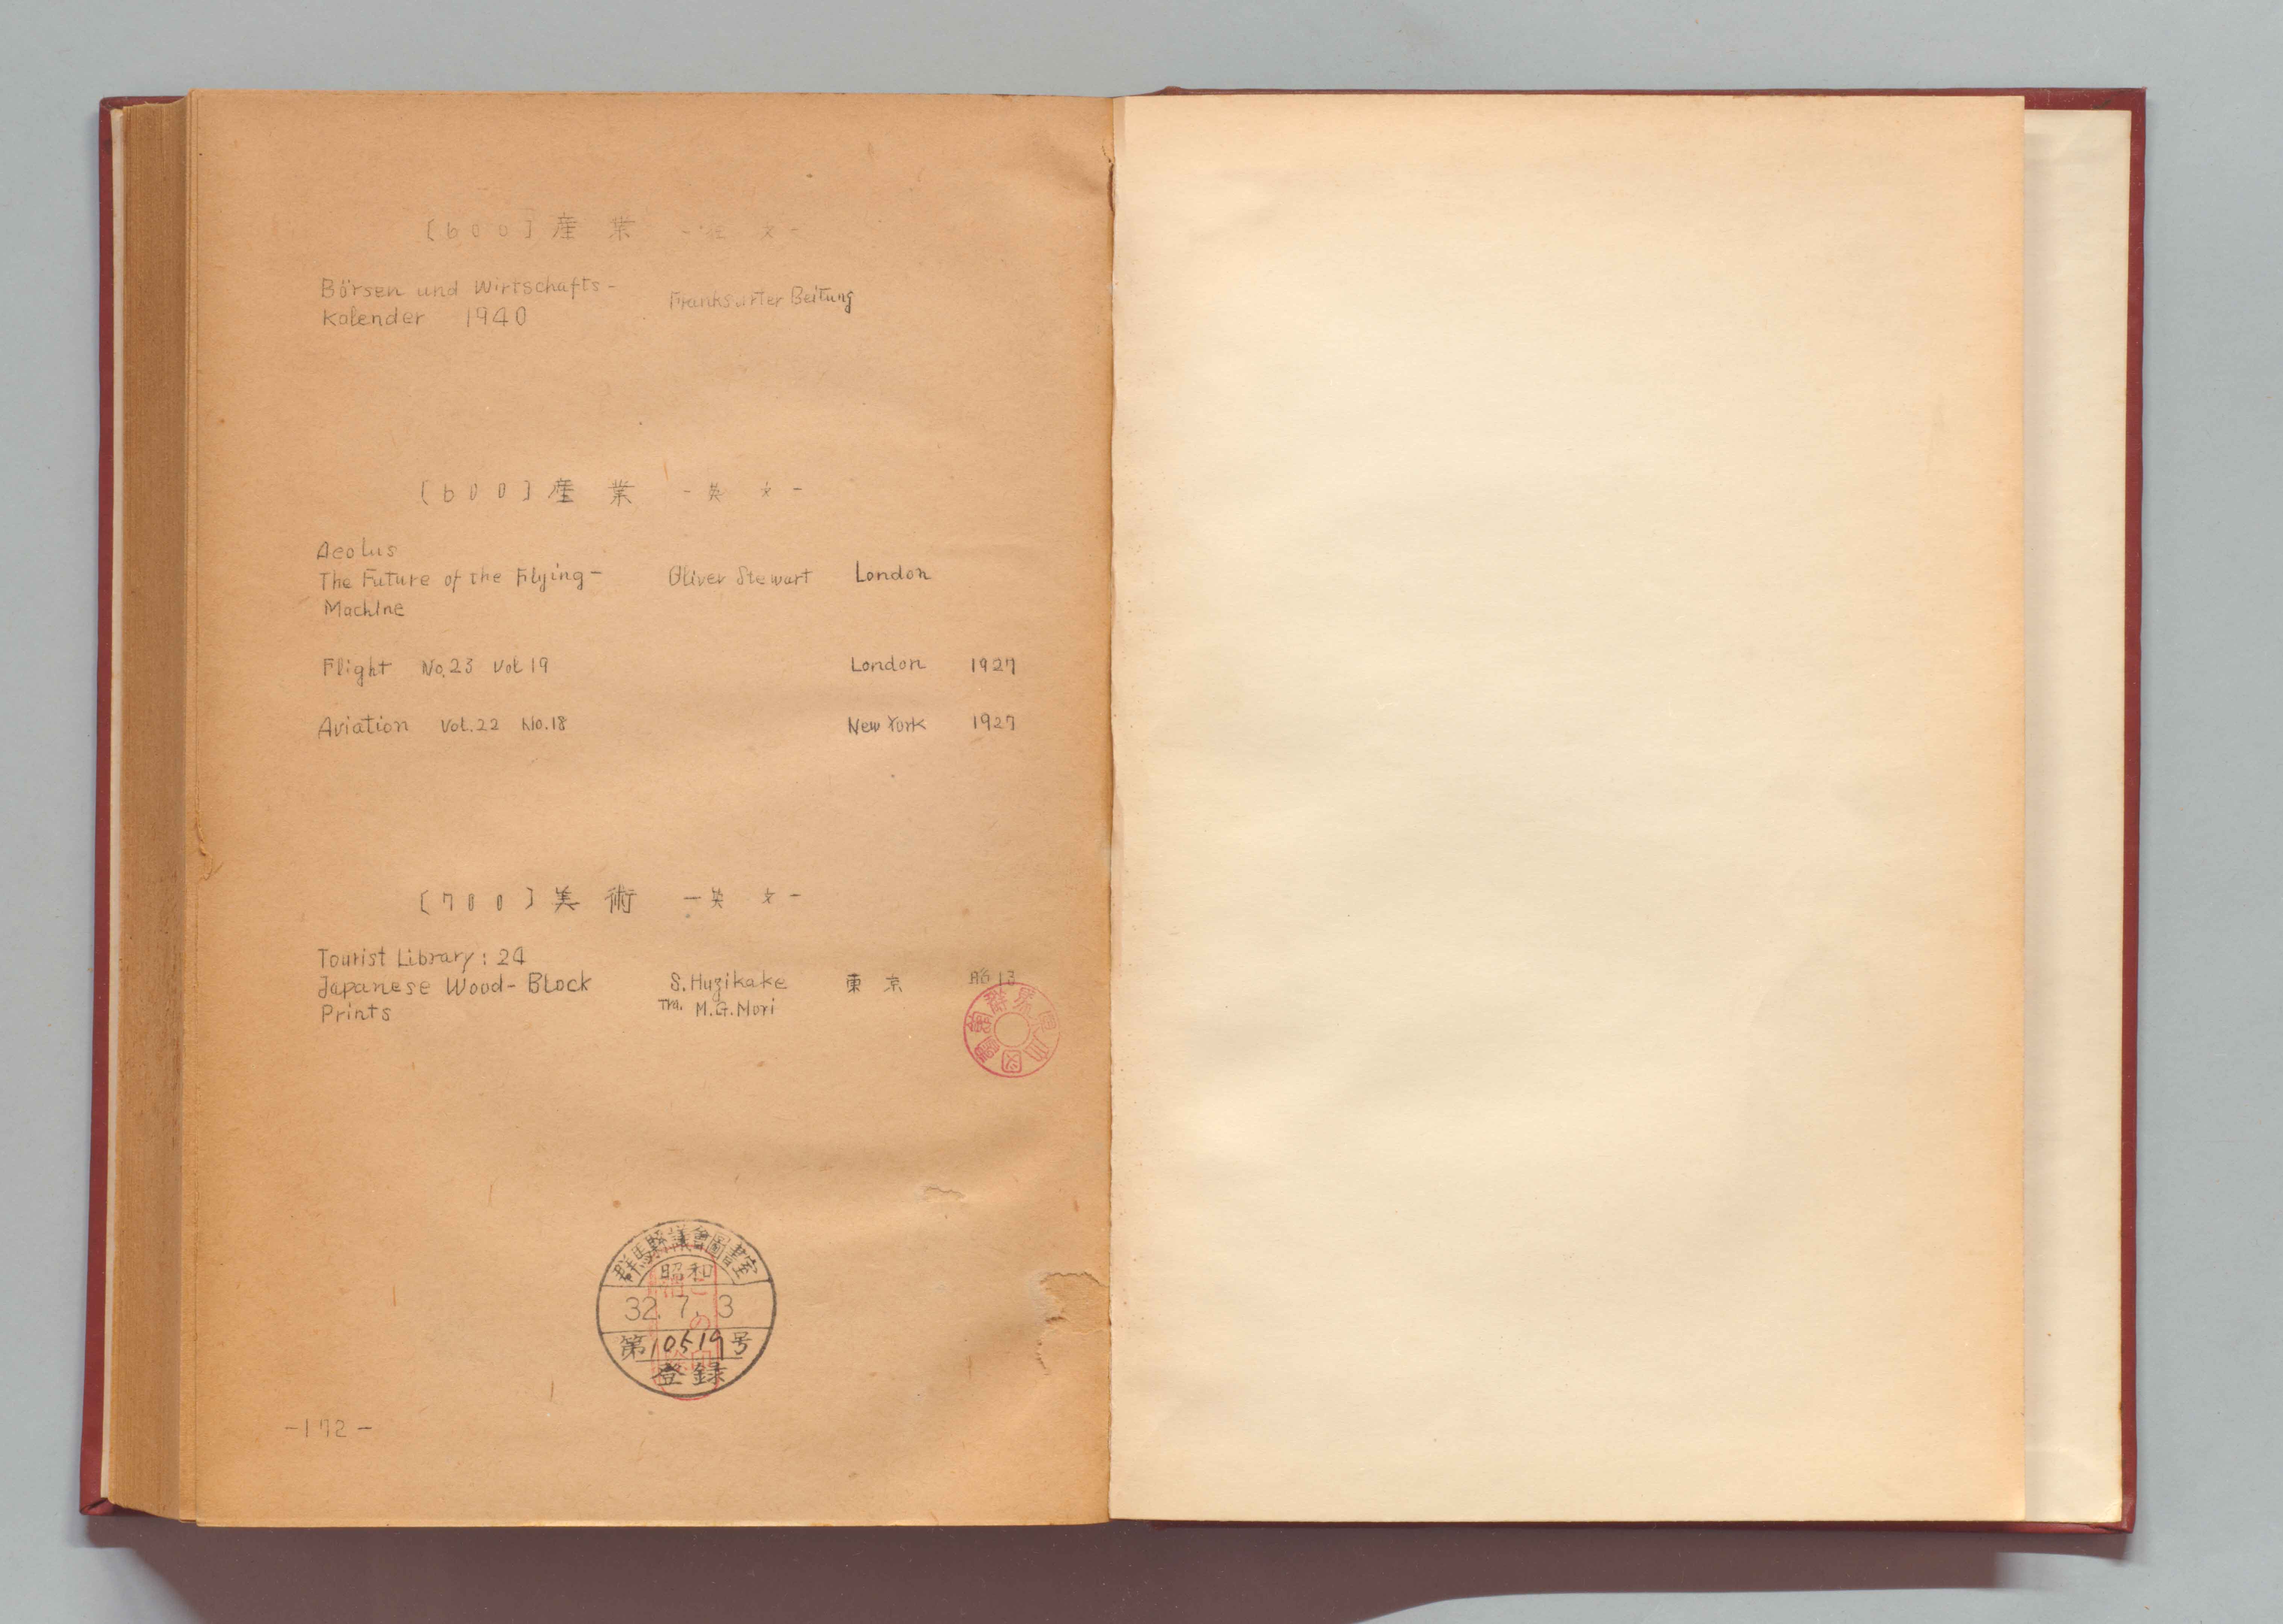 〔600〕産業 -独文-
Börsen und Wirtschafts-
Kalender 1940 Franksurter Beitung
〔600〕産業 -英文-
Aeolus
The Future of the Flying- Oliver Stewart London
Machine
Flight No.23 Vol.19 London 1927
Aviation Vol.22 No.18 New York 1927
〔700〕美術 -英文-
Tourist Library: 24
Japanese Wood-Block S.Hugikake 東京 昭13
Prints Tra. M.G.Mori
群馬県立図書館
群馬縣議會圖書室
昭和
32.7.3
第10519号
登録
-172-